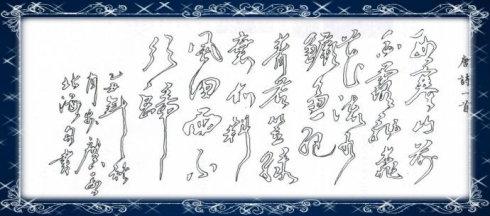 唐詩一首
西塞山前
白鷺飛桃
花流水
鱖魚肥
青箬笠綠
蓑衣斜
風細雨不
須歸
年秋
月
北海